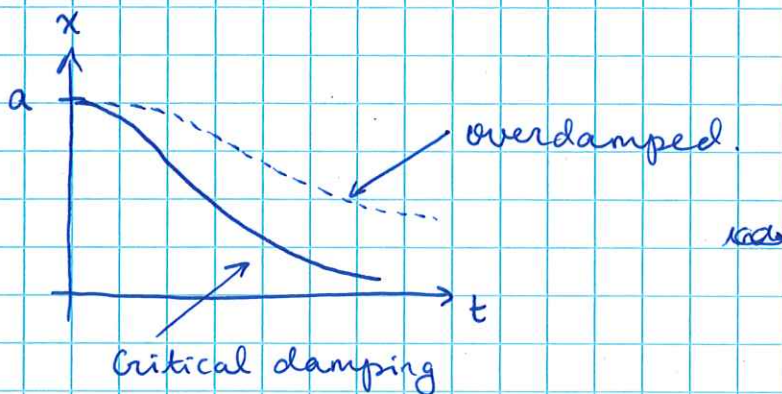 x
a
overdamped.
t
Critical damping